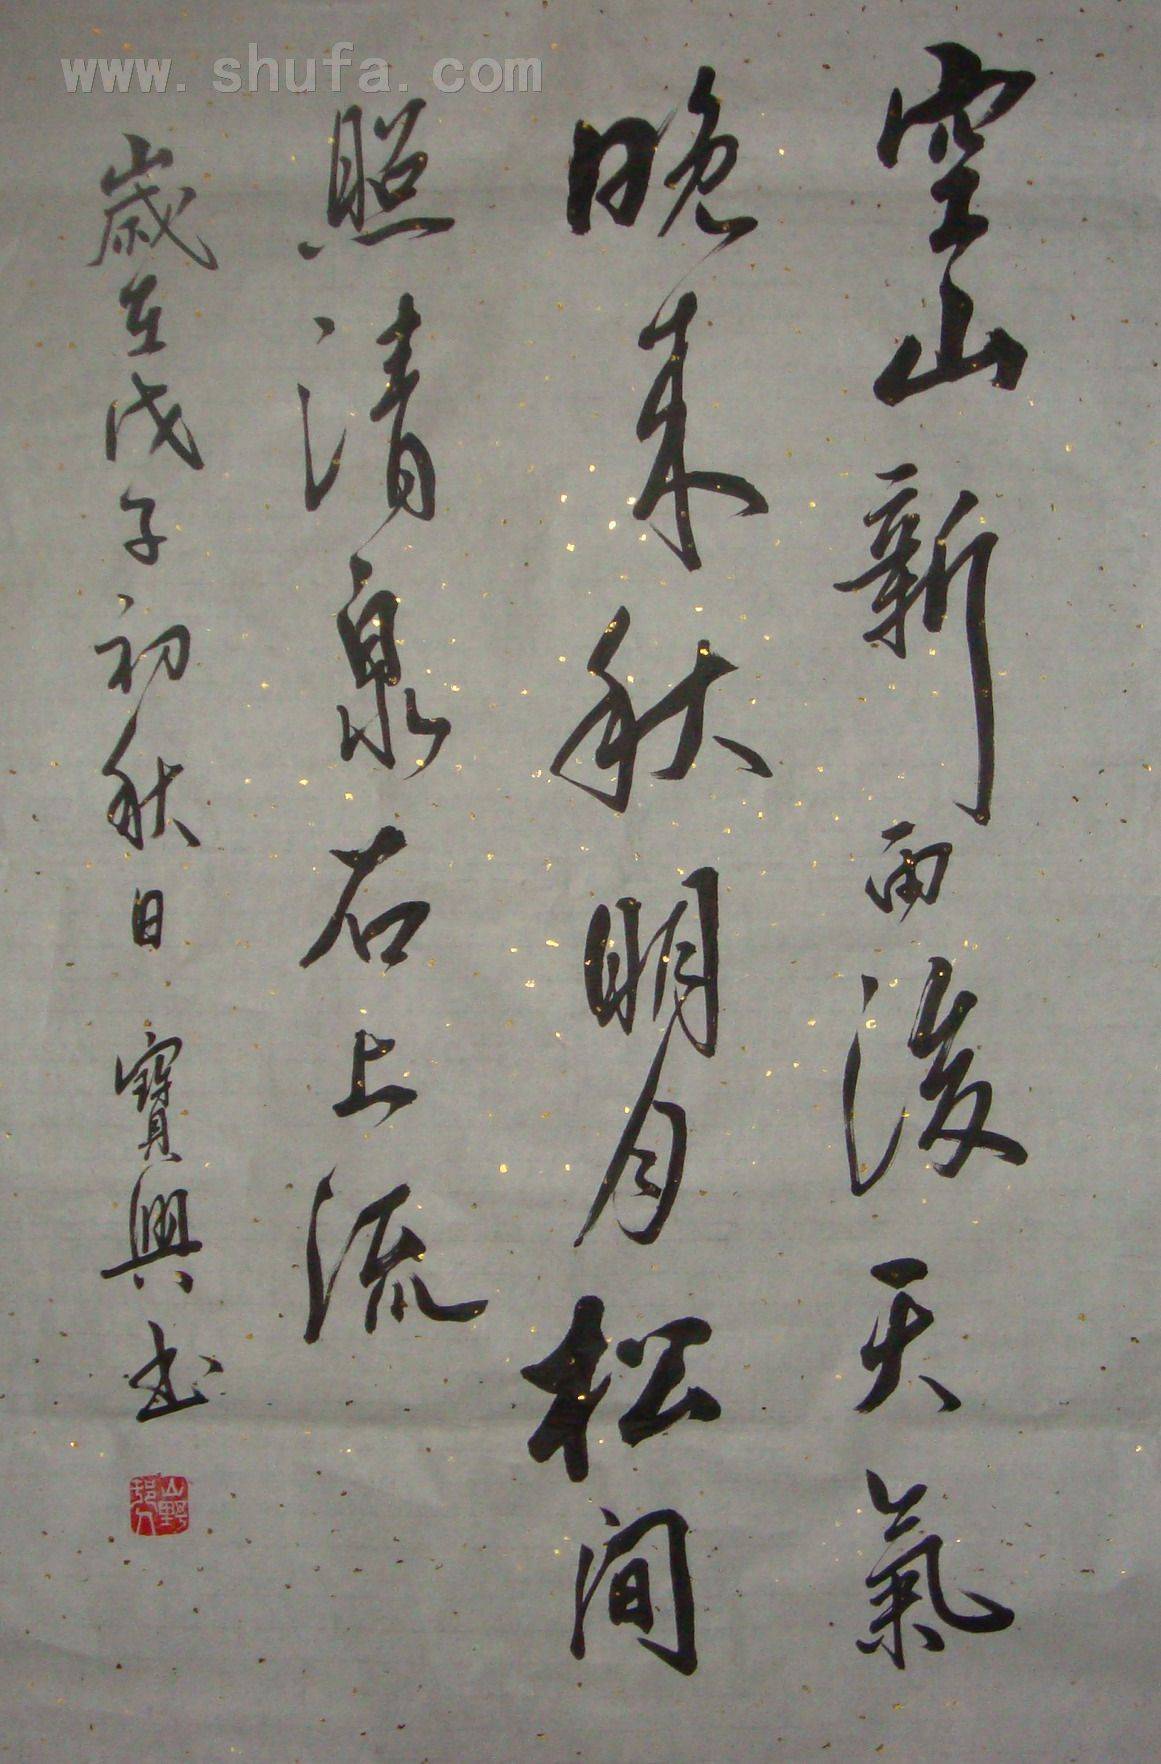 www.shufa.com
空山新雨後天氣
晚来秋明月松间
照清泉石上流
歲在戊子初秋日寶興书